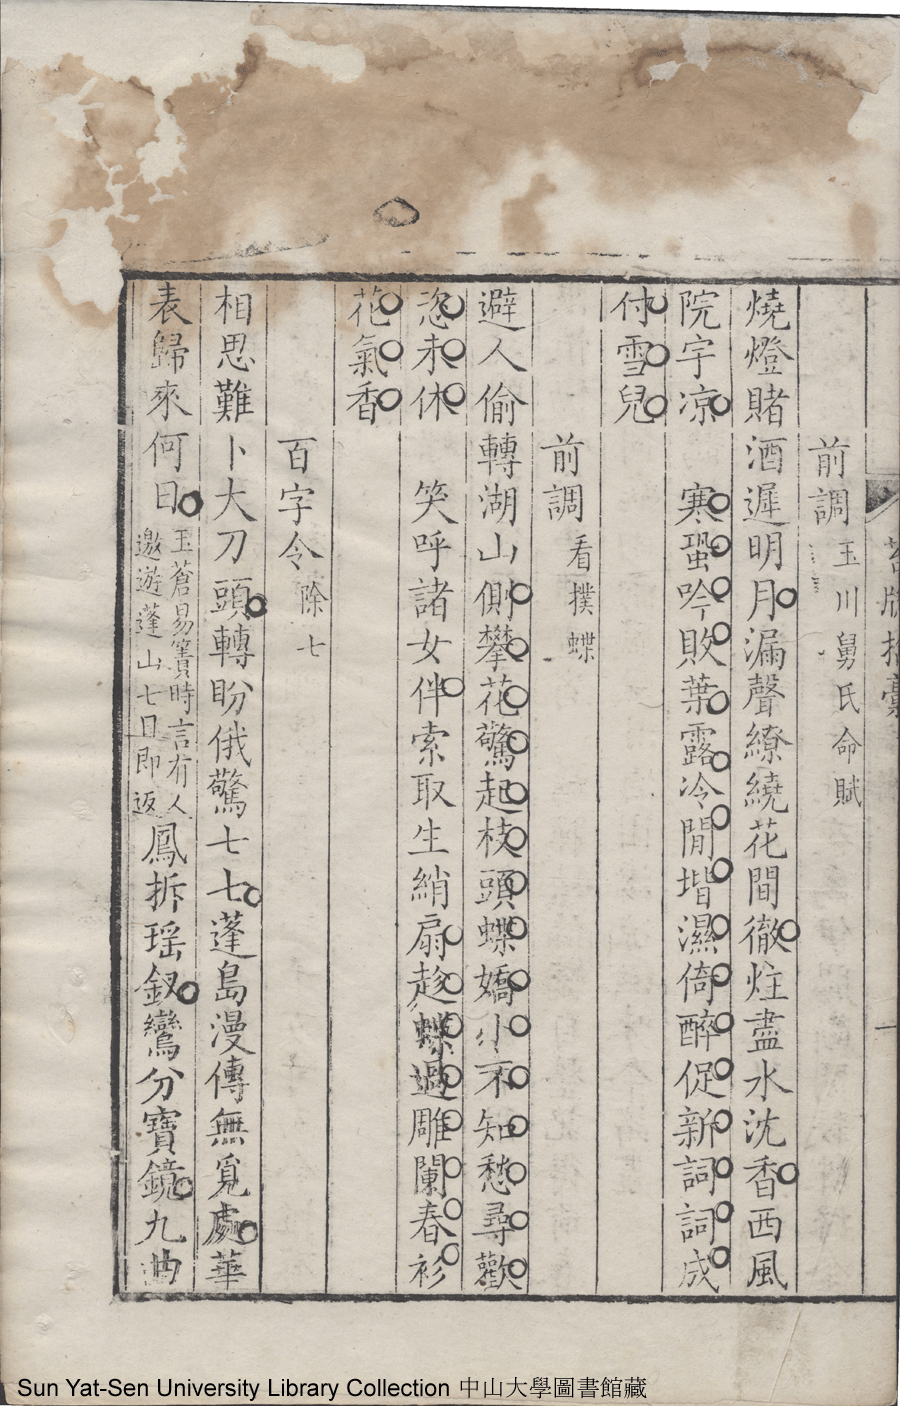 前調 玉川舅氏命賦
燒燈賭酒遲明月漏聲繚繞花間徹炷盡水沈香西風
院宇凉　寒蛩吟敗葉露冷閒堦濕倚醉促新詞詞成
付雪兒
前調 看撲蝶
避人偷轉湖山側攀花驚起枝頭蝶嬌小不知愁尋歡
恣未休　笑呼諸女伴索取生綃扇趁蝶過雕闌春衫
花氣香
百字令 除七
相思難卜大刀頭轉盼俄驚七七蓬島漫傳無覓處華
表歸來何日玉蒼易簀時言有人邀遊蓬山七日即返鳳拆瑶釵鸞分寶鏡九曲
Sun Yat-Sen University Library Collection 中山大學圖書館藏